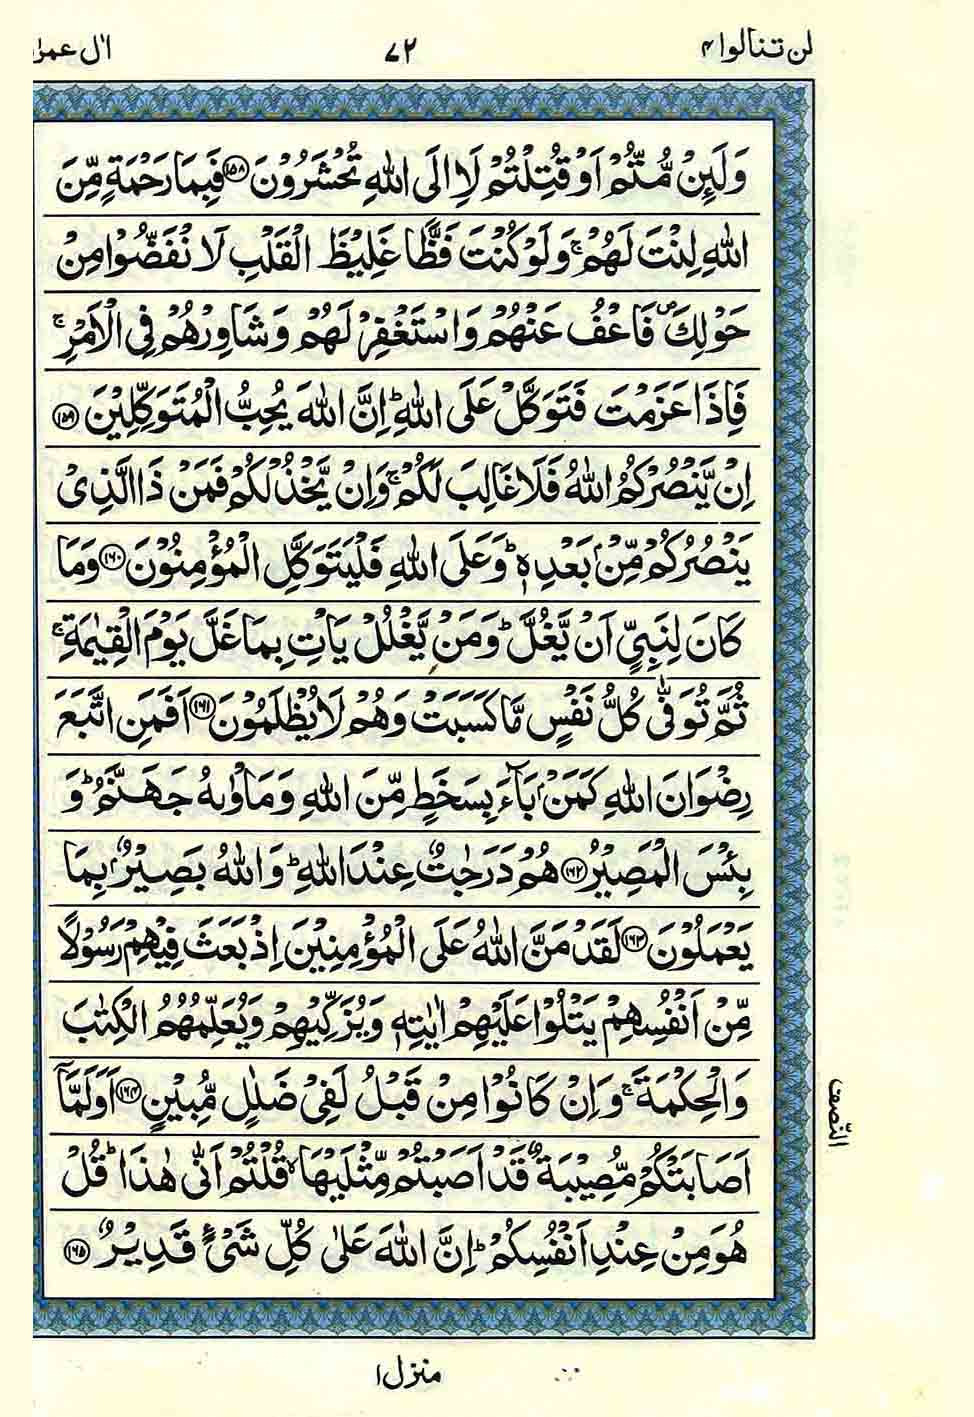 لن تنالوا ۴
۷۲
اٰل عمرٰ
وَلَىِٕنْ مُّتُّمْ اَوْ قُتِلْتُمْ لَاۡ اِلَى اللّٰهِ تُحْشَرُوْنَ ۝۱۵۸ فَبِمَا رَحْمَةٍ مِّنَ
اللّٰهِ لِنْتَ لَهُمْ ۚ وَلَوْ كُنْتَ فَظًّا غَلِيْظَ الْقَلْبِ لَا نْفَضُّوْا مِنْ
حَوْلِكَ ۪ فَاعْفُ عَنْهُمْ وَاسْتَغْفِرْ لَهُمْ وَشَاوِرْهُمْ فِى الْاَمْرِ ۚ
فَاِذَا عَزَمْتَ فَتَوَكَّلْ عَلَى اللّٰهِ ؕ اِنَّ اللّٰهَ يُحِبُّ الْمُتَوَكِّلِيْنَ ۝۱۵۹
اِنْ يَّنْصُرْكُمُ اللّٰهُ فَلَا غَالِبَ لَكُمْ ۚ وَاِنْ يَّخْذُلْكُمْ فَمَنْ ذَا الَّذِىْ
يَنْصُرُكُمْ مِّنْۢ بَعْدِهٖ ؕ وَعَلَى اللّٰهِ فَلْيَتَوَكَّلِ الْمُؤْمِنُوْنَ ۝۱۶۰ وَمَا
كَانَ لِنَبِىٍّ اَنْ يَّغُلَّ ؕ وَمَنْ يَّغْلُلْ يَاْتِ بِمَا غَلَّ يَوْمَ الْقِيٰمَةِ ۚ
ثُمَّ تُوَفّٰى كُلُّ نَفْسٍ مَّا كَسَبَتْ وَهُمْ لَا يُظْلَمُوْنَ ۝۱۶۱ اَفَمَنِ اتَّبَعَ
رِضْوَانَ اللّٰهِ كَمَنْۢ بَآءَ بِسَخَطٍ مِّنَ اللّٰهِ وَمَاْوٰىهُ جَهَنَّمُ ؕ وَ
بِئْسَ الْمَصِيْرُ ۝۱۶۲ هُمْ دَرَجٰتٌ عِنْدَ اللّٰهِ ؕ وَاللّٰهُ بَصِيْرٌۢ بِمَا
يَعْمَلُوْنَ ۝۱۶۳ لَقَدْ مَنَّ اللّٰهُ عَلَى الْمُؤْمِنِيْنَ اِذْ بَعَثَ فِيْهِمْ رَسُوْلًا
مِّنْ اَنْفُسِهِمْ يَتْلُوْا عَلَيْهِمْ اٰيٰتِهٖ وَيُزَكِّيْهِمْ وَيُعَلِّمُهُمُ الْكِتٰبَ
وَالْحِكْمَةَ ۚ وَاِنْ كَانُوْا مِنْ قَبْلُ لَفِىْ ضَلٰلٍ مُّبِيْنٍ ۝۱۶۴ اَوَلَمَّاۤ
اَصَابَتْكُمْ مُّصِيْبَةٌ قَدْ اَصَبْتُمْ مِّثْلَيْهَا ۙ قُلْتُمْ اَنّٰى هٰذَا ؕ قُلْ
هُوَ مِنْ عِنْدِ اَنْفُسِكُمْ ؕ اِنَّ اللّٰهَ عَلٰى كُلِّ شَىْءٍ قَدِيْرٌ ۝۱۶۵
النّصف
منزل ۱